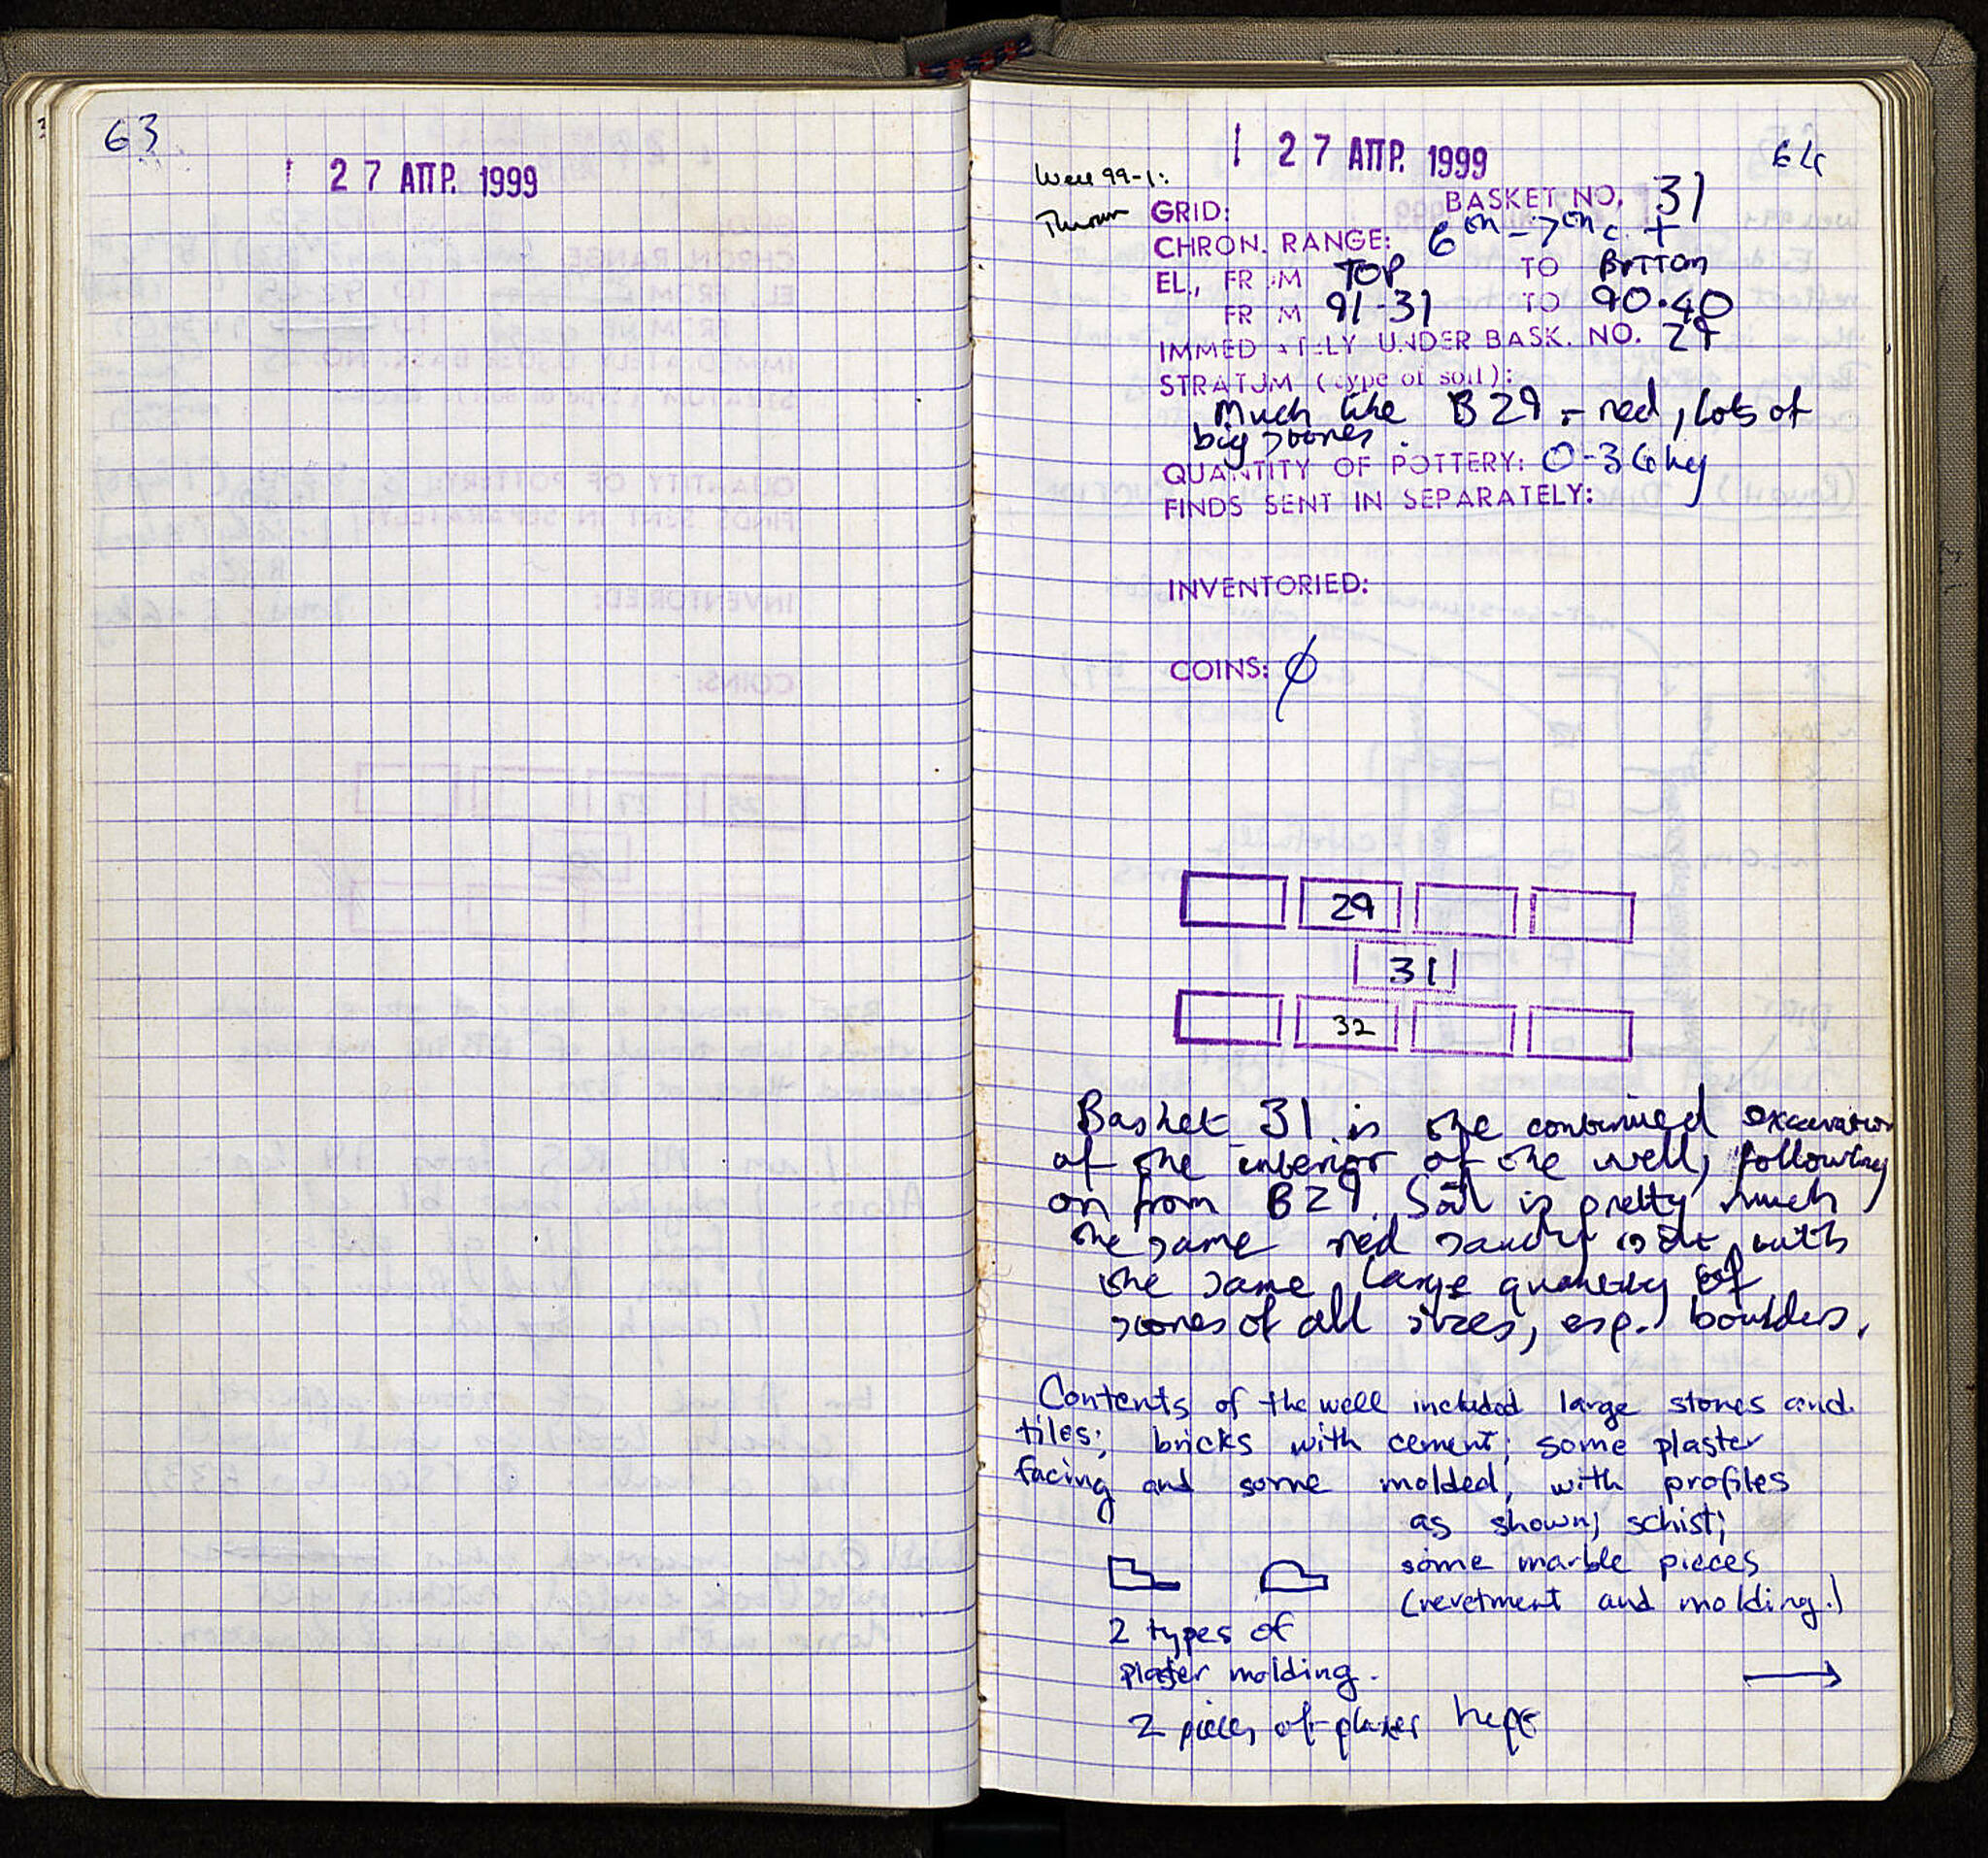 63
27 ΑΠΡ. 1999
27 ΑΠΡ. 1999
64
Well 99-1:
Thrown
GRID:
BASKET NO. 31
CHRON. RANGE: 6th - 7th c. +
EL., FROM TOP TO BOTTOM
FROM 91.31 TO 90.40
IMMEDIATELY UNDER BASK. NO. 29
STRATUM (type of soil):
Much like B29 - red, lots of
big stones.
QUANTITY OF POTTERY: 0-36 kg
FINDS SENT IN SEPARATELY:
INVENTORIED:
COINS: ∅
29
31
32
Basket 31 is the continued excavation
of the interior of the well, following
on from B29. Soil is pretty much
the same red sandy silt, with
the same large quantity of
stones of all sizes, esp. boulders.
Contents of the well included large stones and
tiles; bricks with cement; some plaster
facing and some molded, with profiles
as shown; schist;
some marble pieces
(revetment and molding.)
2 types of
plaster molding.
2 pieces of plaster kept